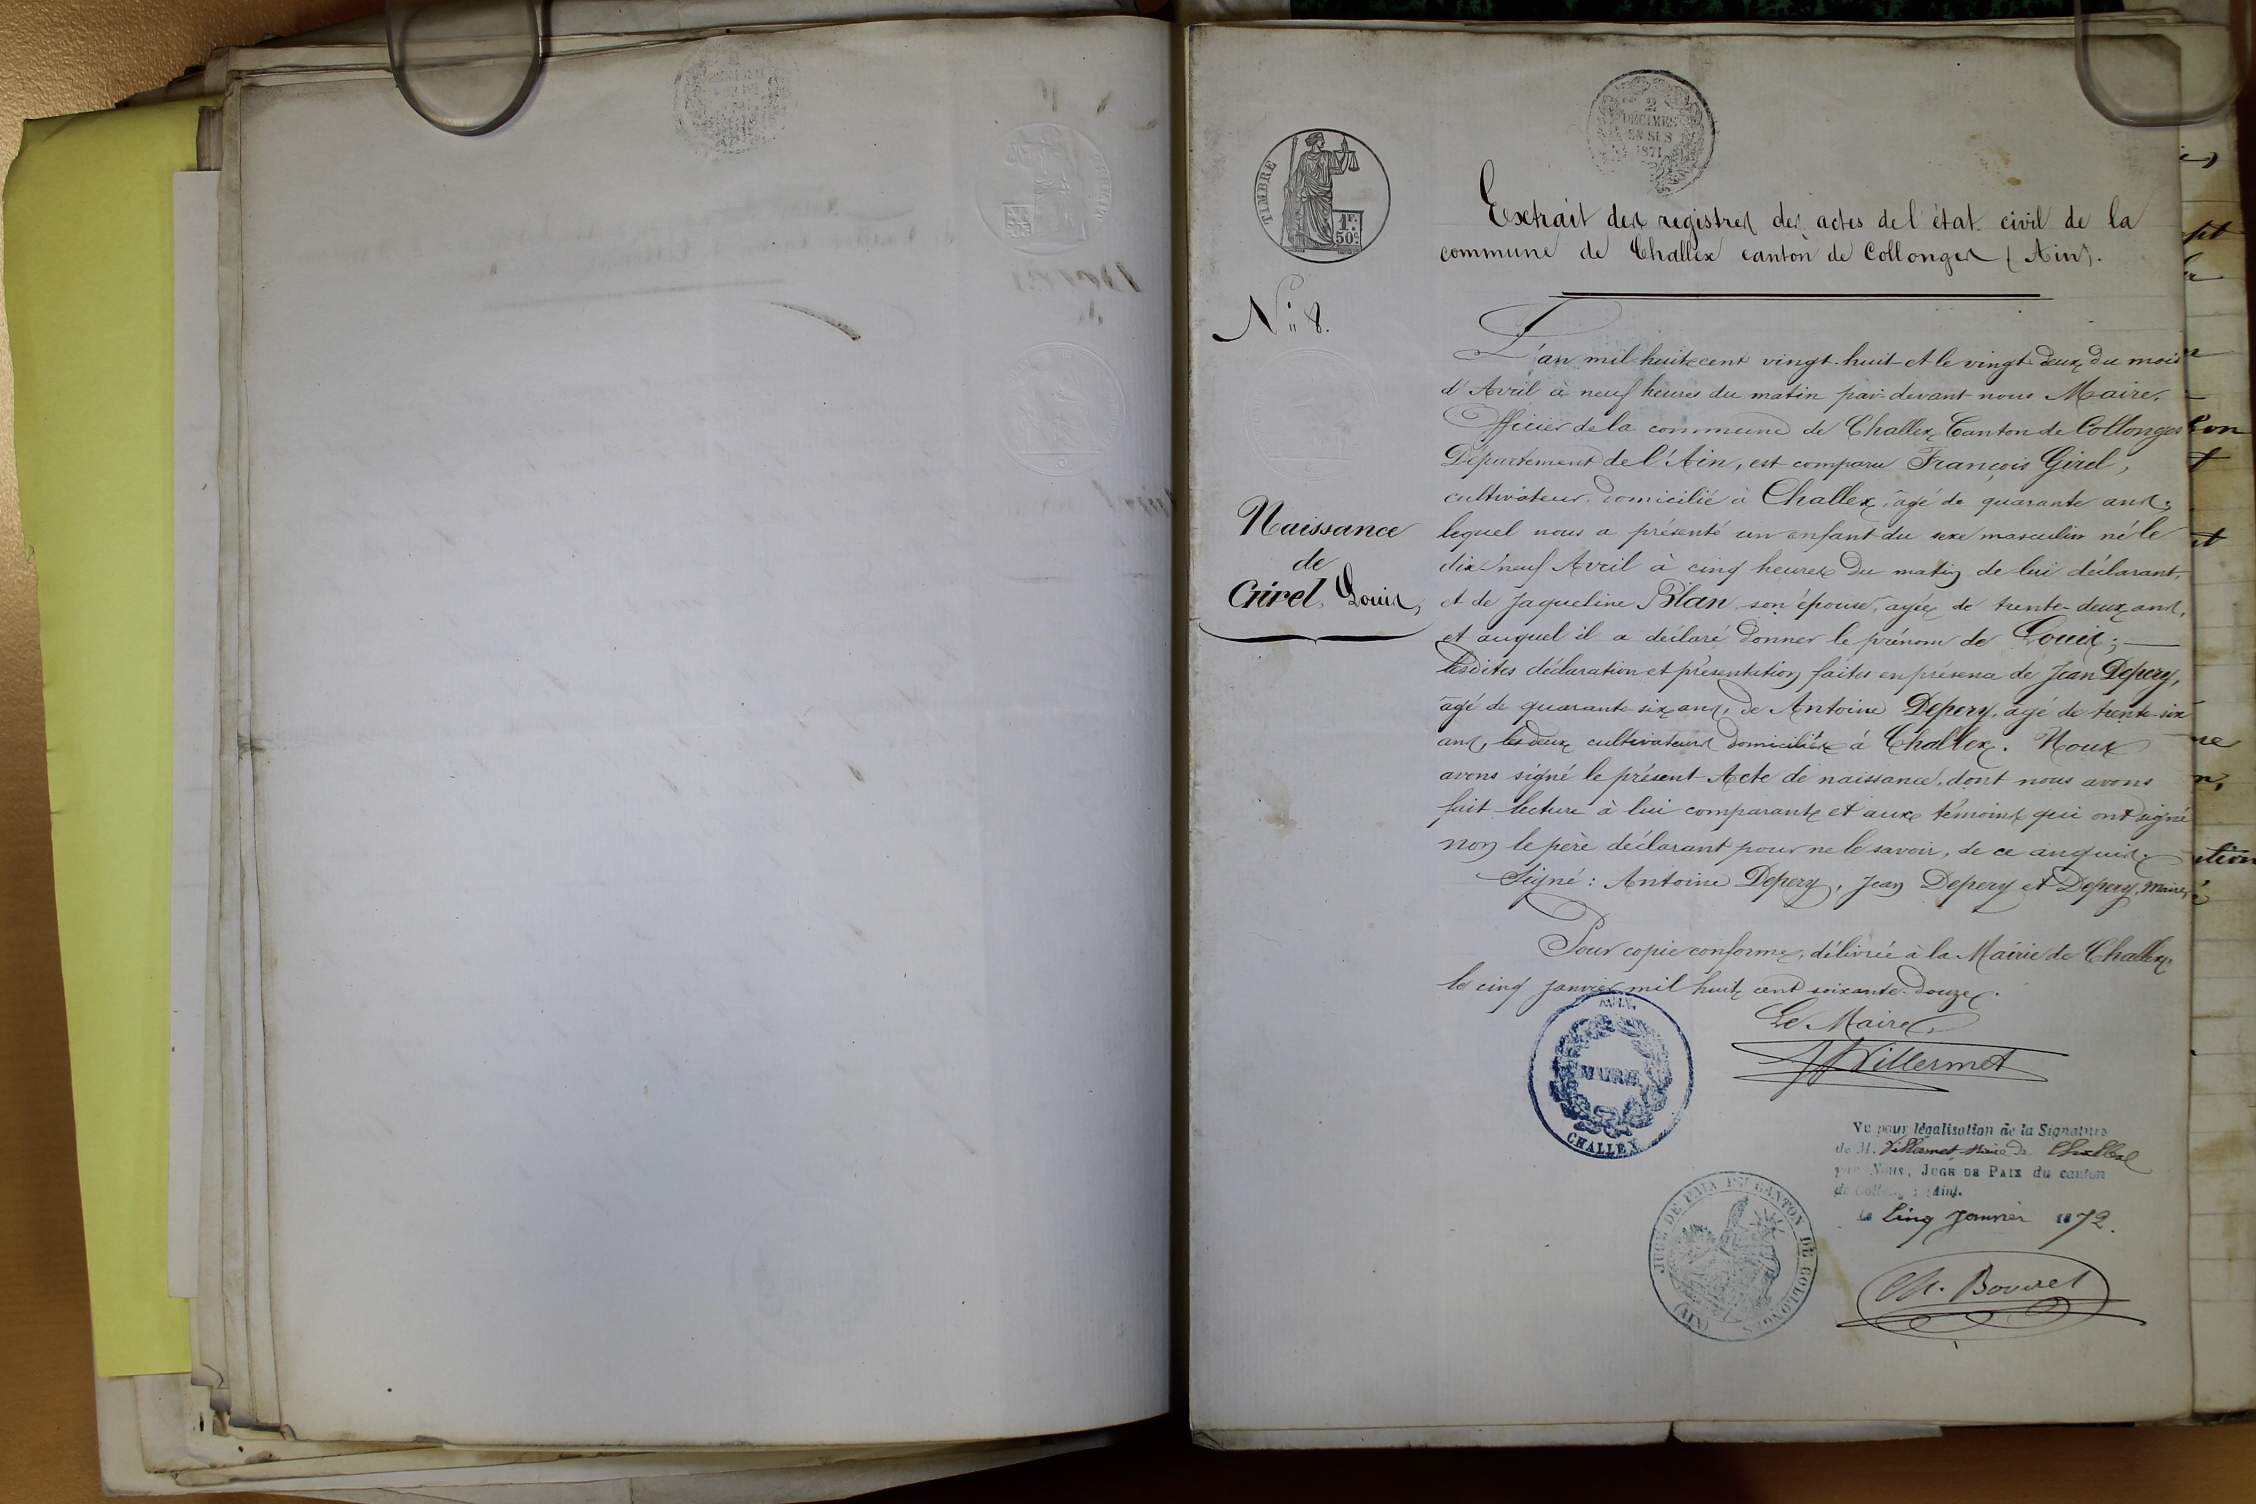 2
DÉCIMES
EN SUS
1871
TIMBRE
1F.
50c
Extrait des registres des actes de l'état civil de la
commune de Challex canton de Collonges (Ain).
No. 8.
Naissance
de
Girel, Louis,
L'an mil huit cent vingt-huit et le vingt deux du mois
d'Avril à neuf heures du matin par-devant nous Maire,
Officier de la commune de Challex Canton de Collonges
Département de l'Ain, est comparu François Girel,
cultivateur domicilié à Challex, âgé de quarante ans;
lequel nous a présenté un enfant du sexe masculin né le
dix neuf Avril à cinq heures du matin de lui déclarant,
et de Jaqueline Blan son épouse, agée de trente-deux ans,
et auquel il a déclaré donner le prénom de Louis;
lesdites déclaration et présentation faites en présence de Jean Depery,
âgé de quarante-six ans, de Antoine Depery, agé de trente-six
ans, les deux cultivateurs domiciliés à Challex. Nous
avons signé le présent Acte de naissance, dont nous avons
fait lecture à lui comparant et aux témoins qui ont signé
non le père déclarant pour ne le savoir, de ce enquis.
Signé: Antoine Depery, Jean Depery et Depery, Maire,
Pour copie conforme, délivrée à la Mairie de Challex
le cinq Janvier mil huit cent soixante-douze.
Le Maire,
Villermet
MAIRIE
CHALLEX
Vu pour légalisation de la Signature
de M. Villermet Maire de Challex
par Nous, JUGE DE PAIX du canton
de Collonges (Ain).
Le Cinq Janvier 1872.
JUGE DE PAIX DU CANTON DE COLLONGES
(AIN)
Ch. Bouvet